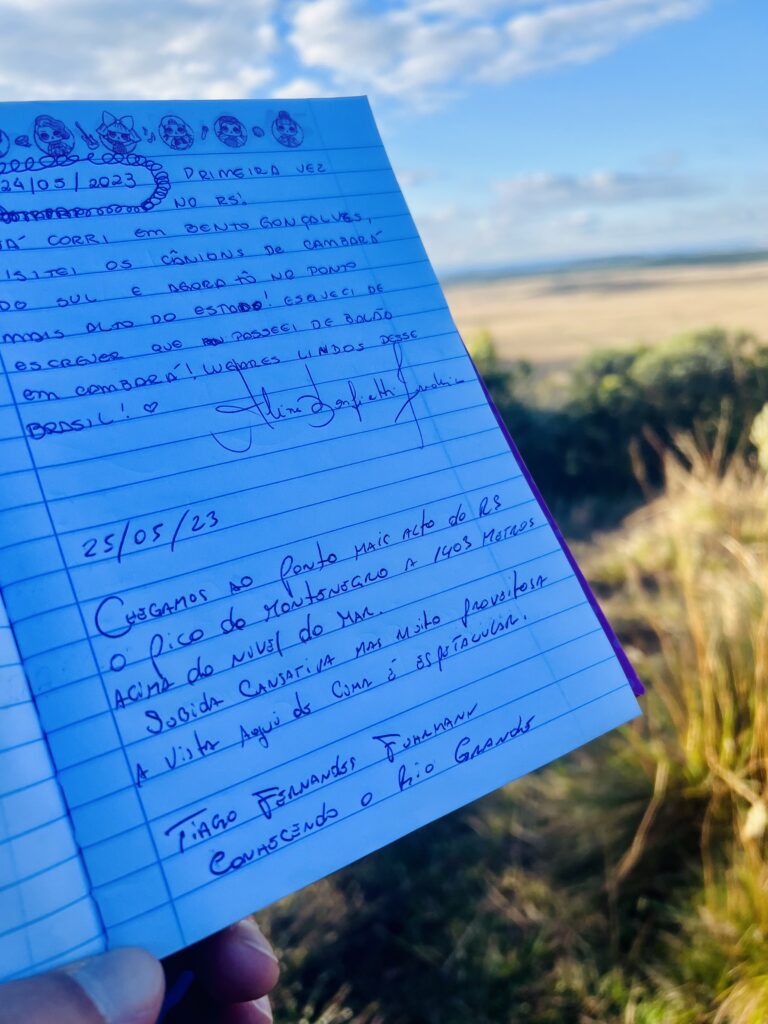 24/05/2023 PRIMEIRA VEZ
NO RS!
JÁ CORRI EM BENTO GONÇALVES,
VISITEI OS CÂNIONS DE CAMBARÁ
DO SUL E AGORA TÔ NO PONTO
MAIS ALTO DO ESTADO! ESQUECI DE
ESCREVER QUE PASSEEI DE BALÃO
EM CAMBARÁ! LUGARES LINDOS DESSE
BRASIL! ♡
25/05/23
CHEGAMOS AO PONTO MAIS ALTO DO RS
O PICO DO MONTENEGRO A 1403 METROS
ACIMA DO NÍVEL DO MAR.
SUBIDA CANSATIVA MAS MUITO PROVEITOSA
A VISTA AQUI DE CIMA É ESPETACULAR.
TIAGO FERNANDES FUHRMANN
CONHECENDO O RIO GRANDE